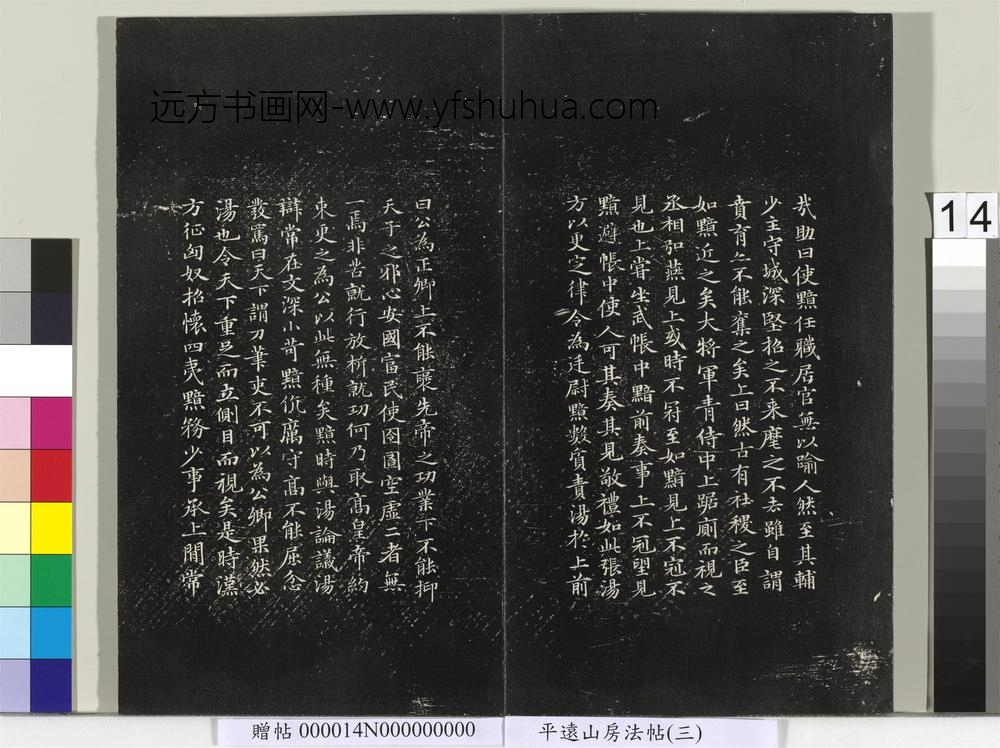 远方书画网-www.yfshuhua.com
哉助曰使黯任職居官無以踰人然至其輔
少主守城深堅招之不来麾之不去雖自謂
賁育亦不能奪之矣上曰然古有社稷之臣至
如黯近之矣大将軍青侍中上踞廁而視之
丞相弘燕見上或時不冠至如黯見上不冠不
見也上甞坐武帳中黯前奏事上不冠望見
黯避帳中使人可其奏其見敬禮如此張湯
方以更定律令為廷尉黯數質責湯於上前
曰公為正卿上不能襃先帝之功業下不能抑
天下之邪心安國富民使囹圄空虚二者無
一焉非苦就行放析就功何乃取髙皇帝約
束更之為公以此無種矣黯時與湯論議湯
辯常在文深小苛黯伉厲守髙不能屈忿
發罵曰天下謂刀筆吏不可以為公卿果然必
湯也令天下重足而立側目而視矣是時漢
方征匈奴招懷四夷黯務少事承上間常
14
贈帖 000014N000000000
平遠山房法帖(三)